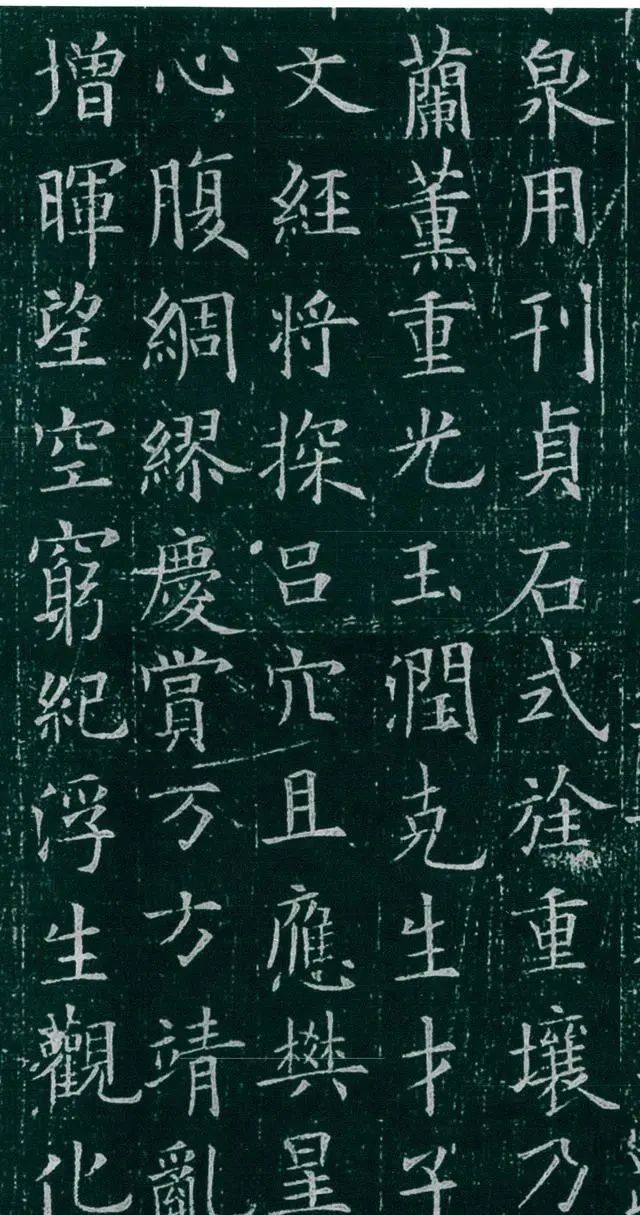 泉用刊貞石式旌重壤乃
蘭薰重光玉潤克生才子
文經將探呂穴且應樊星
心腹綢繆慶賞万方靖亂
增暉望空窮紀浮生觀化